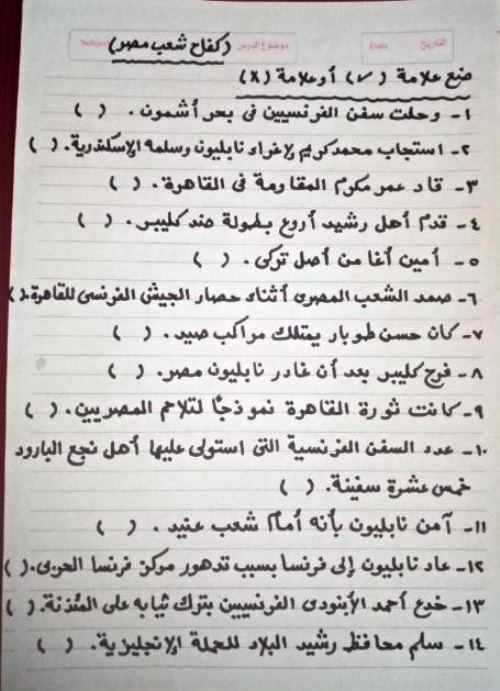 التاريخ Date موضوع الدرس Subject
(كفاح شعب مصر)
ضع علامة (✓) أو علامة (X)
١- وحلت سفن الفرنسيين فى بحر أشمون. ( )
٢- استجاب محمد كريم لإغراء نابليون وسلمه الإسكندرية. ( )
٣- قاد عمر مكرم المقاومة فى القاهرة. ( )
٤- قدم أهل رشيد أروع بطولة ضد كليبر. ( )
٥- أمين أغا من أصل تركى. ( )
٦- صمد الشعب المصرى أثناء حصار الجيش الفرنسى للقاهرة. ( )
٧- كان حسن طوبار يمتلك مراكب صيد. ( )
٨- فرح كليبر بعد أن غادر نابليون مصر. ( )
٩- كانت ثورة القاهرة نموذجًا لتلاحم المصريين. ( )
١٠- عدد السفن الفرنسية التى استولى عليها أهل نجع البارود
خمس عشرة سفينة. ( )
١١- آمن نابليون بأنه أمام شعب عنيد. ( )
١٢- عاد نابليون إلى فرنسا بسبب تدهور مركز فرنسا الحربى. ( )
١٣- خدع أحمد الأبنودى الفرنسيين بترك ثيابه على المئذنة. ( )
١٤- سلم محافظ رشيد البلاد للحملة الإنجليزية. ( )